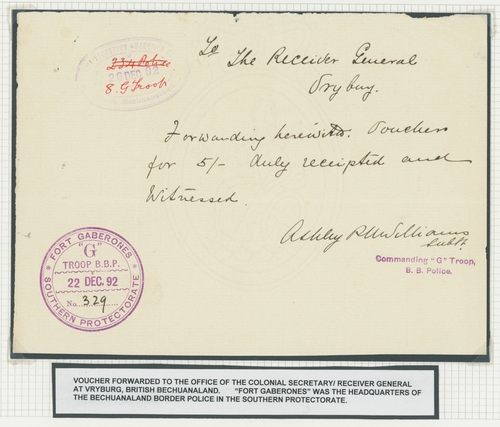 SECRETARY
26 DEC. 92
234 Police
8. G Troop
To The Receiver General
Vryburg.
Forwarding herewith. Voucher
for 5/- duly receipted and
Witnessed.
Ashley Williams
Sub Lt.
Commanding "G" Troop,
B. B. Police.
FORT GABERONES
"G"
TROOP B.B.P.
22 DEC. 92
No. 329
SOUTHERN PROTECTORATE
VOUCHER FORWARDED TO THE OFFICE OF THE COLONIAL SECRETARY/ RECEIVER GENERAL
AT VRYBURG, BRITISH BECHUANALAND. "FORT GABERONES" WAS THE HEADQUARTERS OF
THE BECHUANALAND BORDER POLICE IN THE SOUTHERN PROTECTORATE.